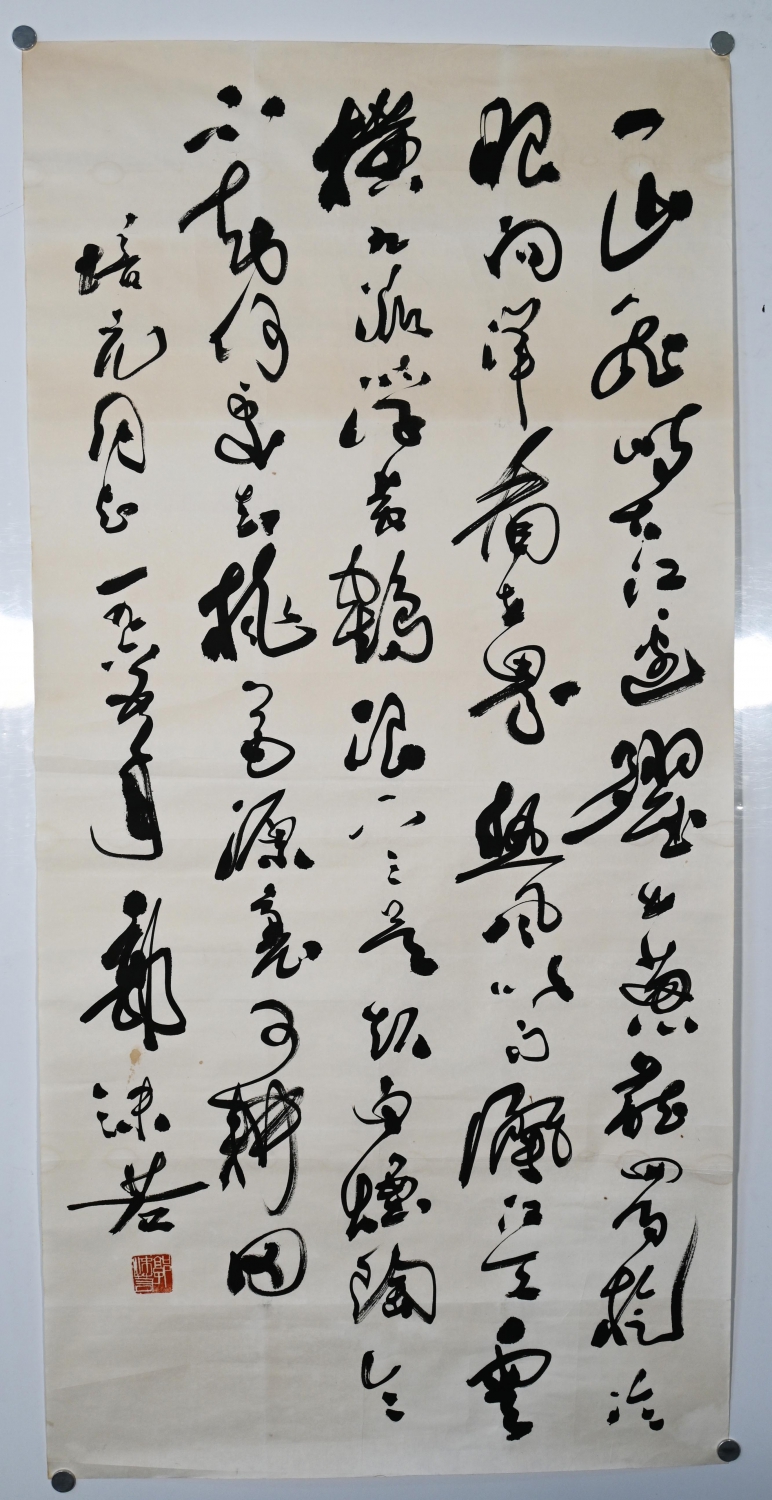 一山飛峙大江邊躍上蔥蘢四百旋冷
眼向洋看世界熱風吹雨灑江天雲
橫九派浮黃鶴浪下三吳起白煙陶令
不知何處去桃花源裏可耕田
培元同志 一九六五年 郭沫若